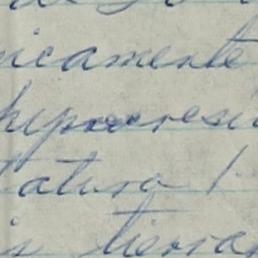 icamente
hipocresi
atura !
is tierra